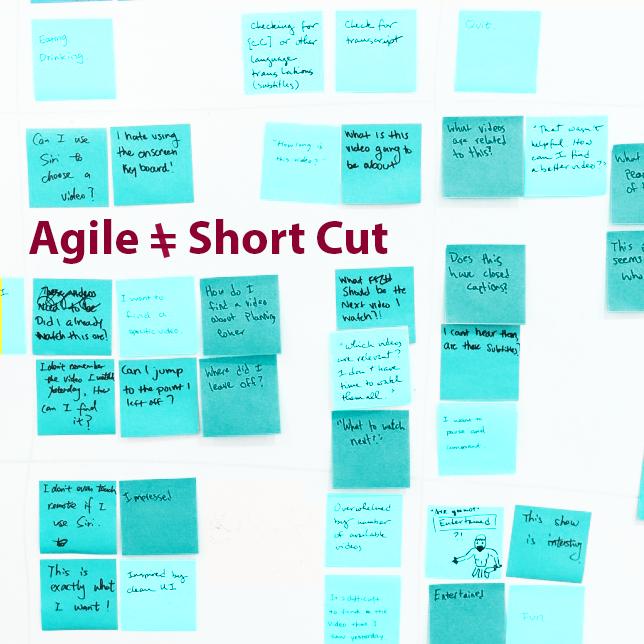 Eating
Drinking.
Checking for
[CC] or other
language
translations
(subtitles)
Check for
transcript
Quit
Can I use
Siri to
choose a
video?
I hate using
the onscreen
keyboard!
"How long is
this video?"
What is this
video going to
be about
What videos
are related
to this?
"That wasn't
helpful. How
can I find
a better video?"
What
of
Agile ≠ Short Cut
Does this
have closed
captions?
This
seems
who
I
need to be
Did I already
watch this one!
I want to
find a
specific video.
How do I
find a video
about Planning
Poker
What
should be the
next video I
watch?!
"Which videos
are relevant?
I don't have
time to watch
them all."
I cant hear them,
are there Subtitles?
I don't remember
the video I watched
yesterday. How
can I find
it?
Can I jump
to the point I
left off?
Where did I
leave off?
"What to watch
next?"
I want to
pause and
comment.
I don't even touch
remote if I
use Siri..
Impressed
Overwhelmed
by number
of available
videos
"Are you not
Entertained
?!
This show
is interesting
This is
exactly what
I want!
Inspired by
clean UI
It's difficult
to find a the
video that I
saw yesterday
Entertained
Fun